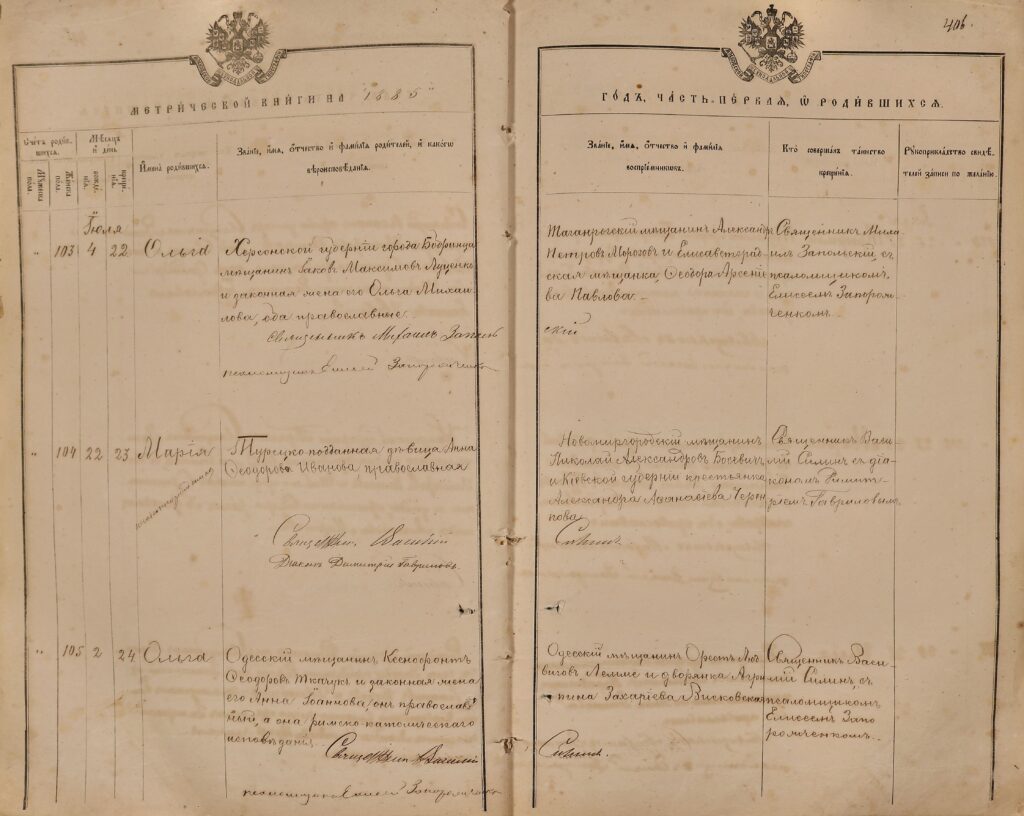 406.
МЕТРИ́ЧЕСКОЙ КНИ́ГИ НА 1885
ГО́ДЪ, ЧА́СТЬ ПЕ́РВАЯ, Ѡ РОДИ́ВШИХСЯ.
Счетъ роди́вшихся.
Мужеска пола.
Женска пола.
Мѣсяцъ и день
рожде нія.
креще нія.
Имена роди́вшихъ.
Званіе, имя, отчество и фамилія родителей, и какого
вѣроисповѣданія.
Званіе, имя, отчество и фамилія
воспріемниковъ.
Кто совершалъ таинство
крещенія.
Рукоприкладство свидѣ
телей записи по желанію.
Іюля
" 103 4 22 Ольга
Херсонской губерніи города Бобринца
мѣщанинъ Іаковъ Максимовъ Луценко
и законная жена его Ольга Михаи
лова, оба православные.
Священникъ Михаилъ Заполь
псаломщикъ Елисей Запорожченко
Таганрогскій мѣщанинъ Александръ
Петровъ Морозовъ и Елисаветград
ская мѣщанка Ѳеодора Арсеніе
ва Павлова.
скій
Священникъ Миха
илъ Запольскій, съ
псаломщикомъ
Елисеемъ Запорож
ченкомъ
" 104 22 23 Марія
Турецко подданная дѣвица Анна
Ѳеодорова Иванова, православная
Священникъ Василій
Діаконъ Димитрій Гавриловъ.
Новомиргородскій мѣщанинъ
Николай Александровъ Босевичъ
и Кіевской губерніи крестьянка
Александра Аѳанасіева Череп
пова
Силинъ.
Священникъ Васи
лій Силинъ съ діа
кономъ Димит
ріемъ Гавриловымъ
" 105 2 24 Ольга
Одесскій мѣщанинъ Ксенофонтъ
Ѳеодоровъ Ткачукъ и законная жена
его Анна Іоаннова, онъ православ
ный, а она римско-католическаго
исповѣданія.
Священникъ Василій
псаломщикъ Елисей Запорожченко
Одесскій мѣщанинъ Орестъ Люд
виговъ Лемме и дворянка Агри
пина Захаріева Висковская
Силинъ.
Священникъ Васи
лій Силинъ, съ
псаломщикомъ
Елисеемъ Запо
рожченкомъ.